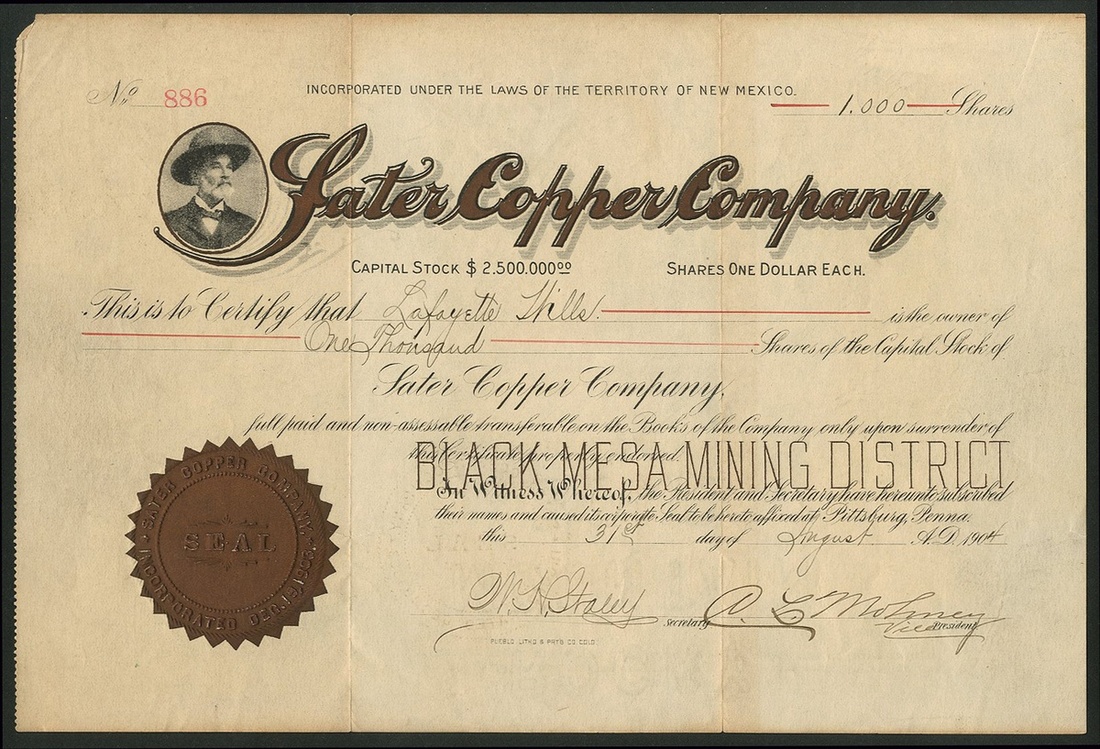 INCORPORATED UNDER THE LAWS OF THE TERRITORY OF NEW MEXICO.
No 886
1.000 Shares
Sater Copper Company.
CAPITAL STOCK $ 2.500.000 00
SHARES ONE DOLLAR EACH.
This is to Certify that Lafayette Hills. is the owner of
One Thousand Shares of the Capital Stock of
Sater Copper Company,
full paid and non-assessable transferable on the Books of the Company only upon surrender of
this Certificate properly endorsed.
BLACK MESA MINING DISTRICT
In Witness Whereof, the President and Secretary have hereunto subscribed
their names and caused its corporate Seal to be hereto affixed at Pittsburg, Penna.
this 31st day of August A.D. 1904
SATER COPPER COMPANY.
SEAL
INCORPORATED DEC.
W. H. Staley Secretary
Vice President
PUEBLO LITHO & PRTG CO. COLO.